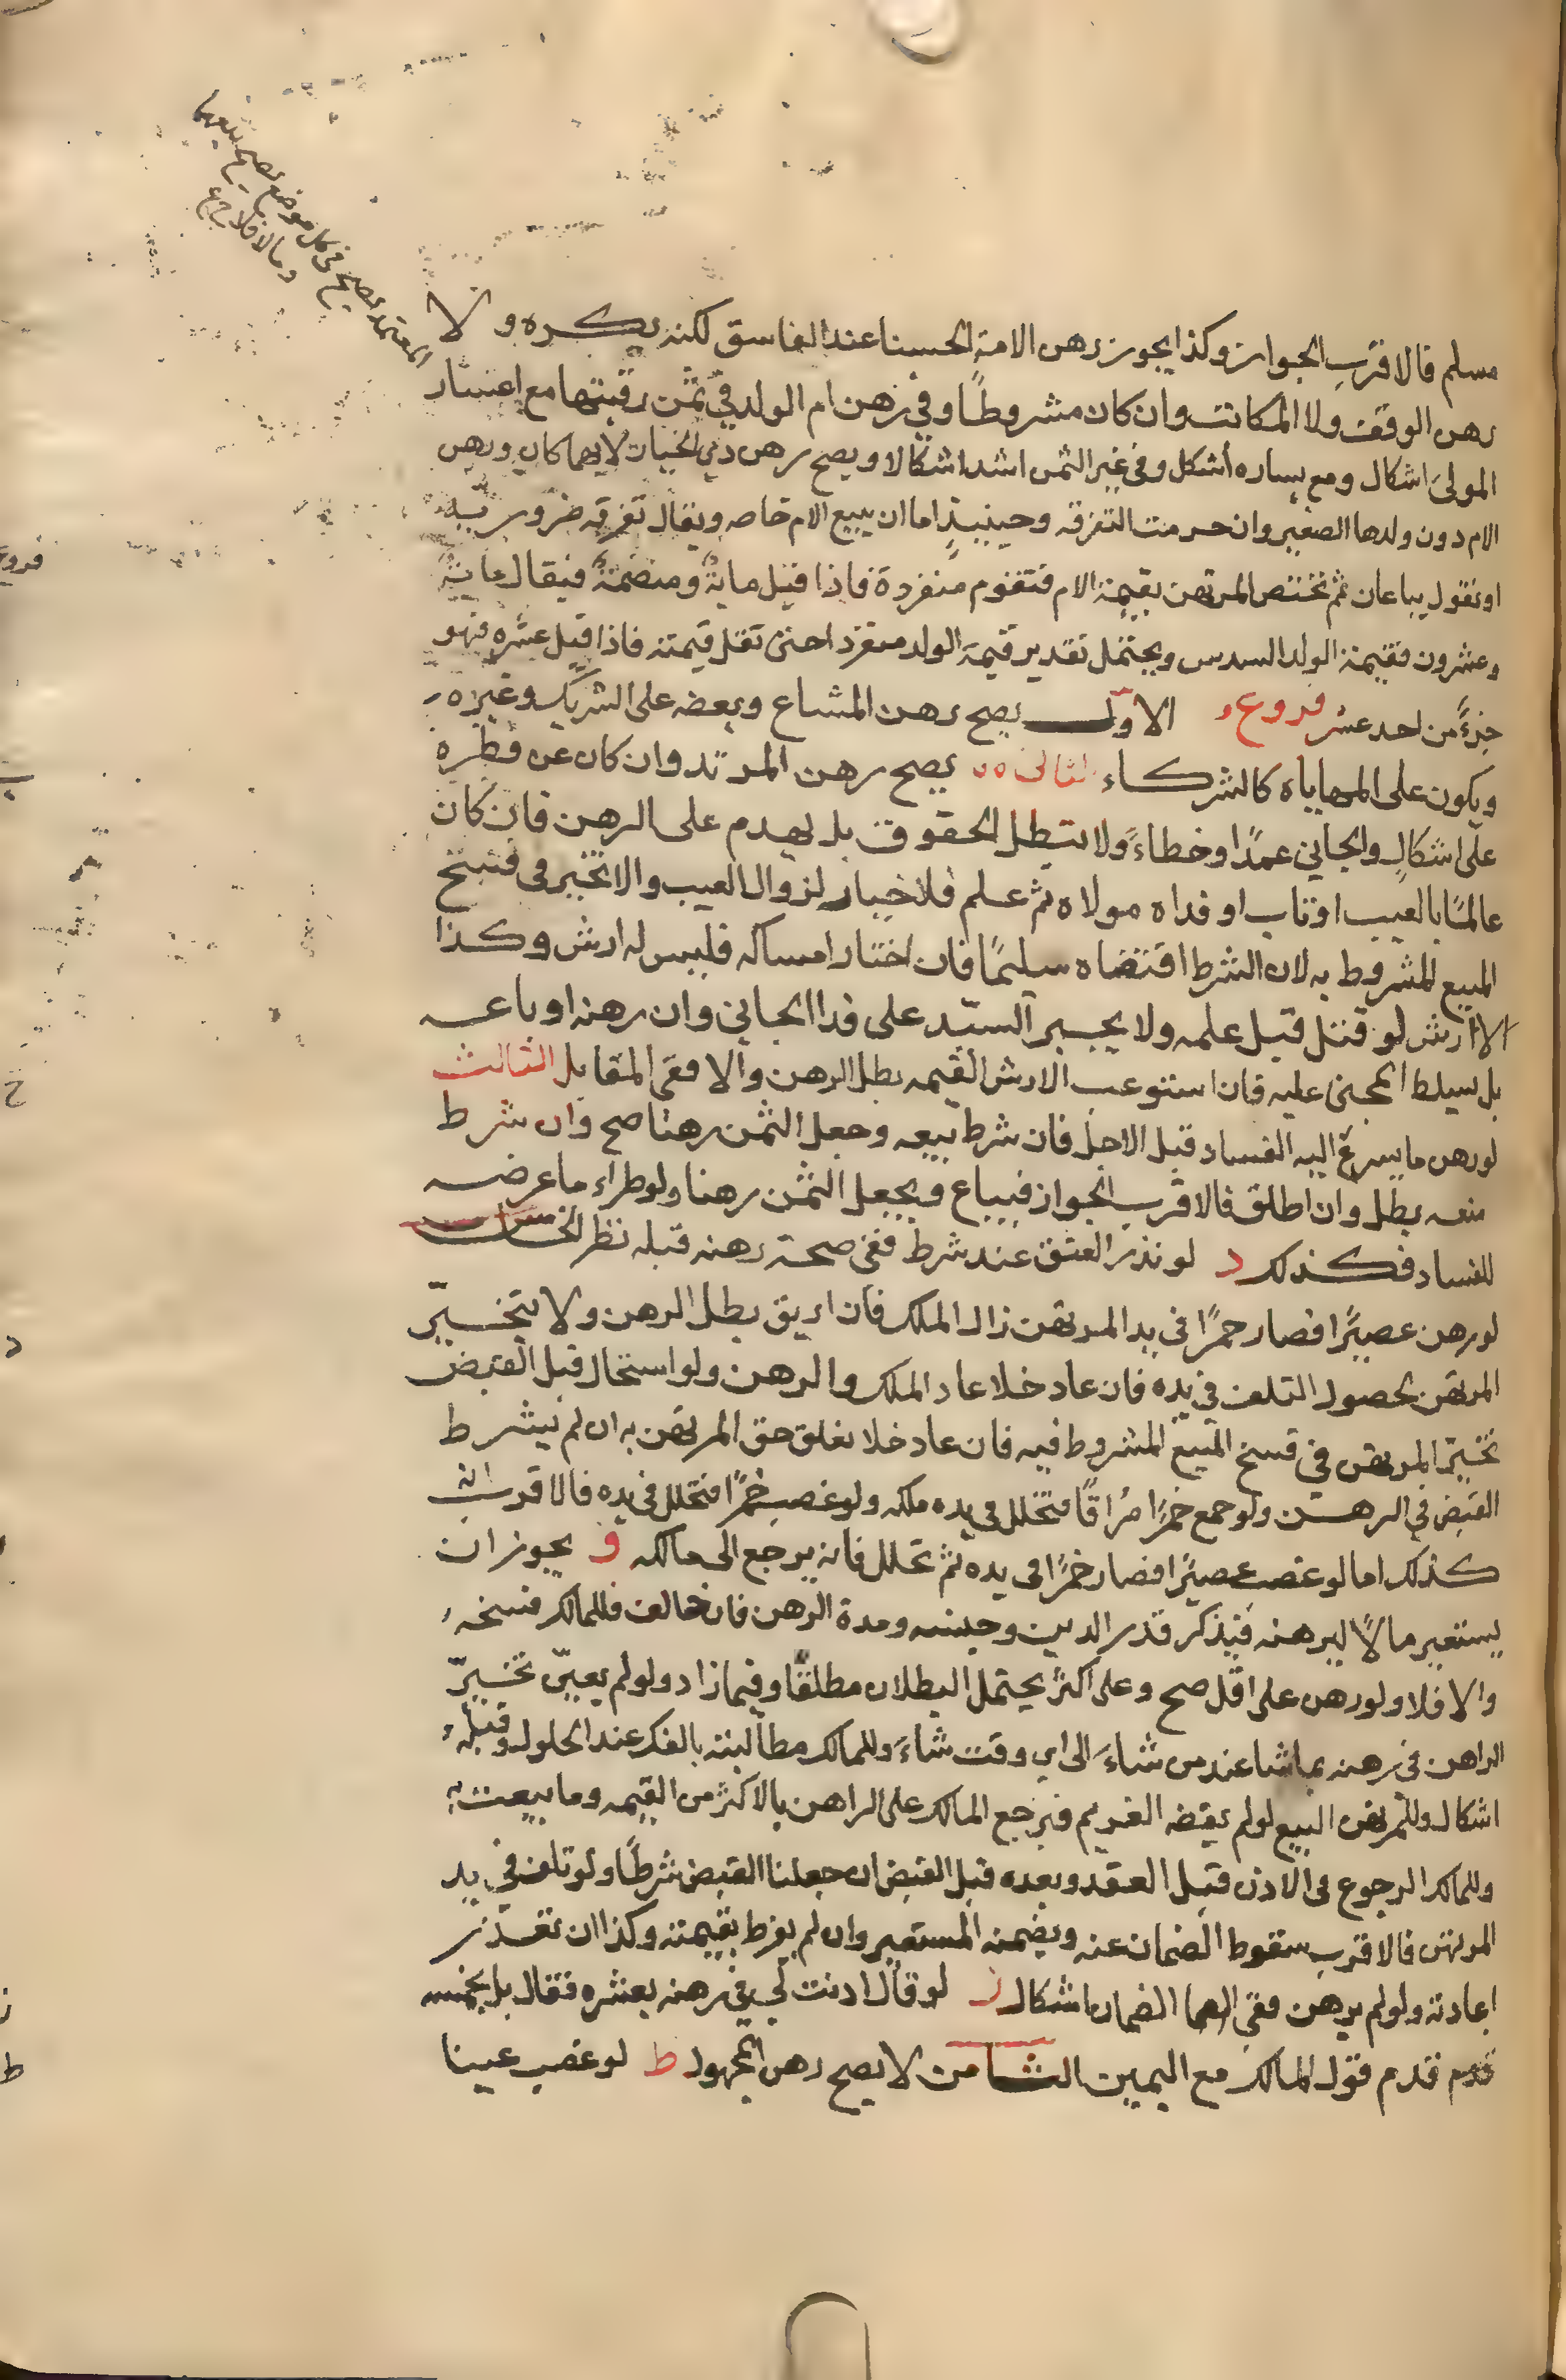 المعتمد يصح في كل موضع يصح بيعها
وما لا فلا ع
مسلم فالاقرب الجواز وكذا يجوز رهن الامة الحسنا عند الفاسق لكنه يكره ولا
رهن الوقف ولا المكاتب وان كان مشروطًا وفي رهن ام الولد في ثمن رقبتها مع اعسار
المولى اشكال ومع يساره أشكل وفي غير الثمن اشد اشكالا ويصح رهن ذي الخيار لايهما كان ورهن
الام دون ولدها الصغير وان حرمت التفرقه وحينيذٍ اما ان يبيع الام خاصه ويقال تفرقه ضروريه
او نقول يباعان ثم يختص المرتهن بقيمة الام فتقوم منفردة فاذا قيل مايةٌ ومنضمةً فيقال ماية
وعشرون فقيمة الولد السدس ويحتمل تقدير قيمة الولد منفردا حتى تقل قيمته فاذا قيل عشره فهو
جزءً من احد عشر فروع الاول يصح رهن المشاع وبعضه على الشريك وغيره
ويكون على المهاياة كالشركاء الثانى يصح رهن المرتد وان كان عن فطرة
على اشكالٍ والجاني عمدًا وخطاءً ولا تبطل الحقوق بل يقدم على الرهن فان كان
عالمًا بالعيب او تاب او فداه مولاه ثم علم فلا خيار لزوال العيب والا تخير في فسخ
المبيع المشروط به لان الشرط اقتضاه سليمًا فان اختار امساكه فليس له ارش وكذا
لا ارش لو قتل قبل علمه ولا يجبر السيّد على فدا الجاني وان رهنه او باعه
بل يسلط المجنى عليه فان استوعب الارش القيمه بطل الرهن والا ففى المقابل الثالث
لو رهن ما يسرع اليه الفساد قبل الاجل فان شرط بيعه وجعل الثمن رهنا صح وان شرط
منعه بطل وان اطلق فالاقرب الجواز فيباع ويجعل الثمن رهنا ولو طراء ما عرضه
للفساد فكذلك د لو نذر العتق عند شرط ففى صحة رهنه قبله نظر الخامس
لو رهن عصيرًا فصار خمرًا في يد المرتهن زال الملك فان اريق بطل الرهن ولا يتخيّر
المرتهن لحصول التلف في يده فان عاد خلا عاد الملك والرهن ولو استحال قبل القبض
تخيّر المرتهن في فسخ المبيع المشروط فيه فان عاد خلا تعلق حق المرتهن به ان لم نشرط
القبض في الرهن ولو جمع خمرًا مُراقًا فتخلل في يده ملكه ولو غصب خمرًا فتخلل في يده فالاقرب انه
كذلك اما لو غصب عصيرًا فصار خمرًا في يده ثم تخلل فانه يرجع الى مالكه و يجوز ان
يستعير مالًا ليرهنه فيذكر قدر الدين وجنسه ومدة الرهن فان خالف فللمالك فسخه
والا فلا ولو رهن على اقل صح وعلى اكثر يحتمل البطلان مطلقًا وفيما زاد ولو لم يعيّن تخيّر
الراهن في رهنه بما شا عند من شاءَ الى اي وقت شاءَ وللمالك مطالبته بالفك عند الحلول وقبله
اشكال وللمرتهن البيع لو لم يقضه الغريم فيرجع المالك على الراهن بالاكثر من القيمه وما بيعت به
وللمالك الرجوع فى الاذن قبل العقد وبعده قبل القبض ان جعلنا القبض شرطًا ولو تلف في يد
المرتهن فالاقرب سقوط الضمان عنه ويضمنه المستعير وان لم يفرط بقيمته وكذا ان تعذر
اعادته ولو لم يرهن ففى الضمان اشكال ز لو قال اذنت لي في رهنه بعشره فقال بل بخمسه
قدم قول المالك مع اليمين الثامن لا يصح رهن المجهول ط لو غصب عينا
فروع
ب
ج
د
ز
ط